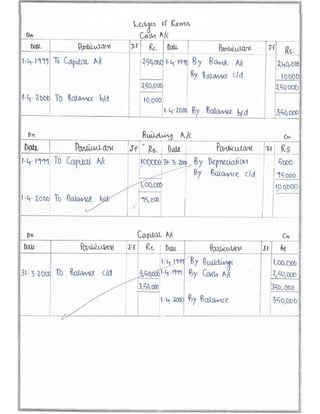 Ledger of Rama
Cash A/c
Dr
Date Particulars J.F Rs. Date Particulars J.F Rs.
1-4-1999 To Capital A/c 250,000 1-4-1999 By Bank A/c 240,000
By Balance c/d 10000
250,000 250,000
1-4-2000 To Balance b/d 10,000
1-4-2000 By Balance b/d 350,000
Dr Building A/c Cr
Date Particulars J.F Rs. Date Particulars J.F RS
1-4-1999 To Capital A/c 100,000 31-3-2000 By Depreciation 5000
By Balance c/d 95000
1,00,000 100000
1-4-2000 To Balance b/d 95,000
Dr Capital A/c Cr
Date Particulars J.F Rs. Date Particulars J.F Rs
1-4-1999 By Buildings 1,00,000
31-3-2000 To Balance c/d 3,50,000 1-4-1999 By Cash A/c 2,50,000
3,50,000 350,000
1-4-2000 By Balance 350,000